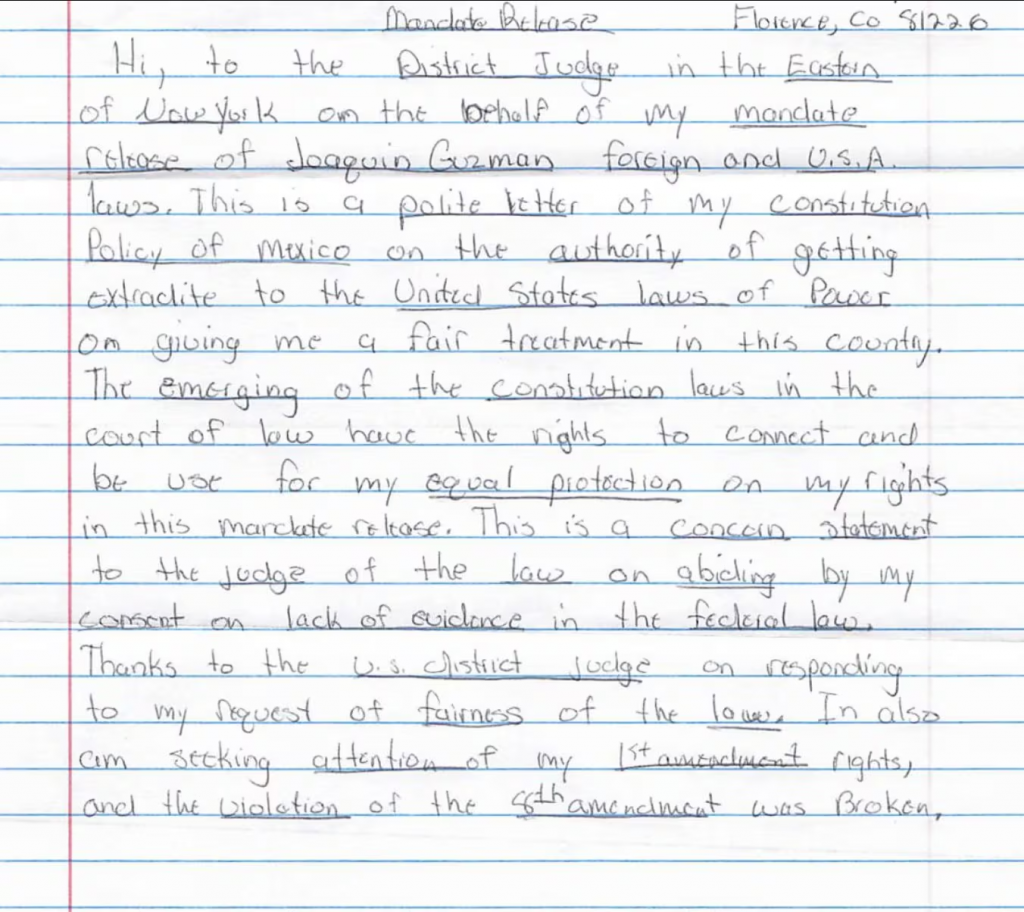 Mandate Release Florence, Co 81226
Hi, to the District Judge in the Eastern
of New York on the behalf of my mandate
release of Joaquin Guzman foreign and U.S.A.
laws. This is a polite letter of my constitution
Policy of mexico on the authority of getting
extradite to the United States laws of Power
on giving me a fair treatment in this country.
The emerging of the constitution laws in the
court of law have the rights to connect and
be use for my equal protection on my rights
in this mandate release. This is a concern statement
to the judge of the law on abiding by my
consent on lack of evidence in the federal law.
Thanks to the U.S. district judge on responding
to my request of fairness of the law. In also
am seeking attention of my 1st amendment rights,
and the violation of the 8th amendment was Broken.